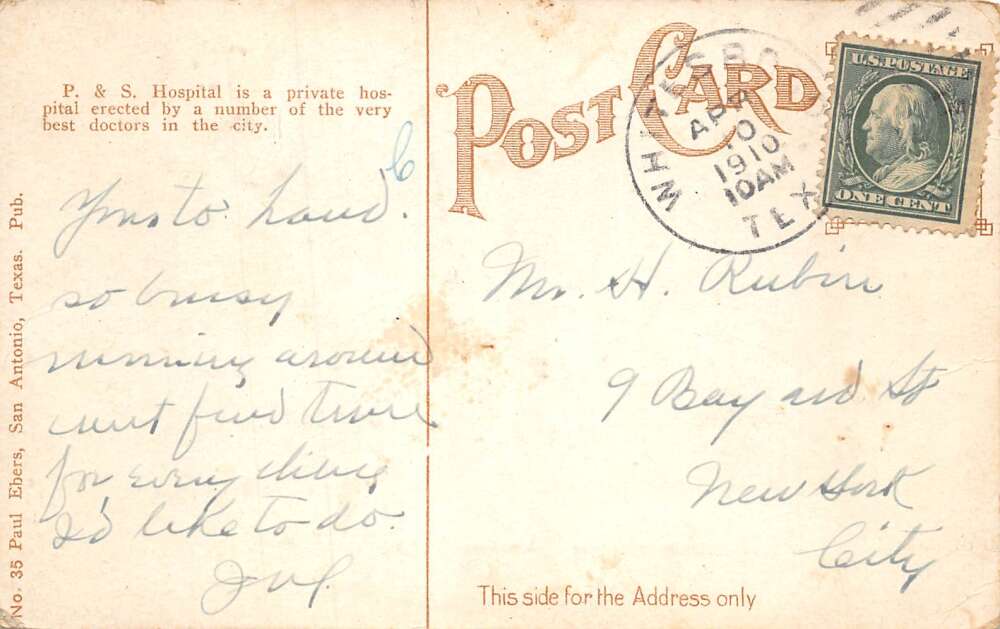 P. & S. Hospital is a private hos-
pital erected by a number of the very
best doctors in the city.
Yours to hand.
so busy
running around
cant find time
for everything
I'd like to do.
No. 35 Paul Ebers, San Antonio, Texas. Pub.
POST CARD
WHITESBORO
APR
10
1910
10AM
TEX
U.S. POSTAGE
ONE CENT
Mr. H. Rubin
9 Bayard St
New York
City
This side for the Address only